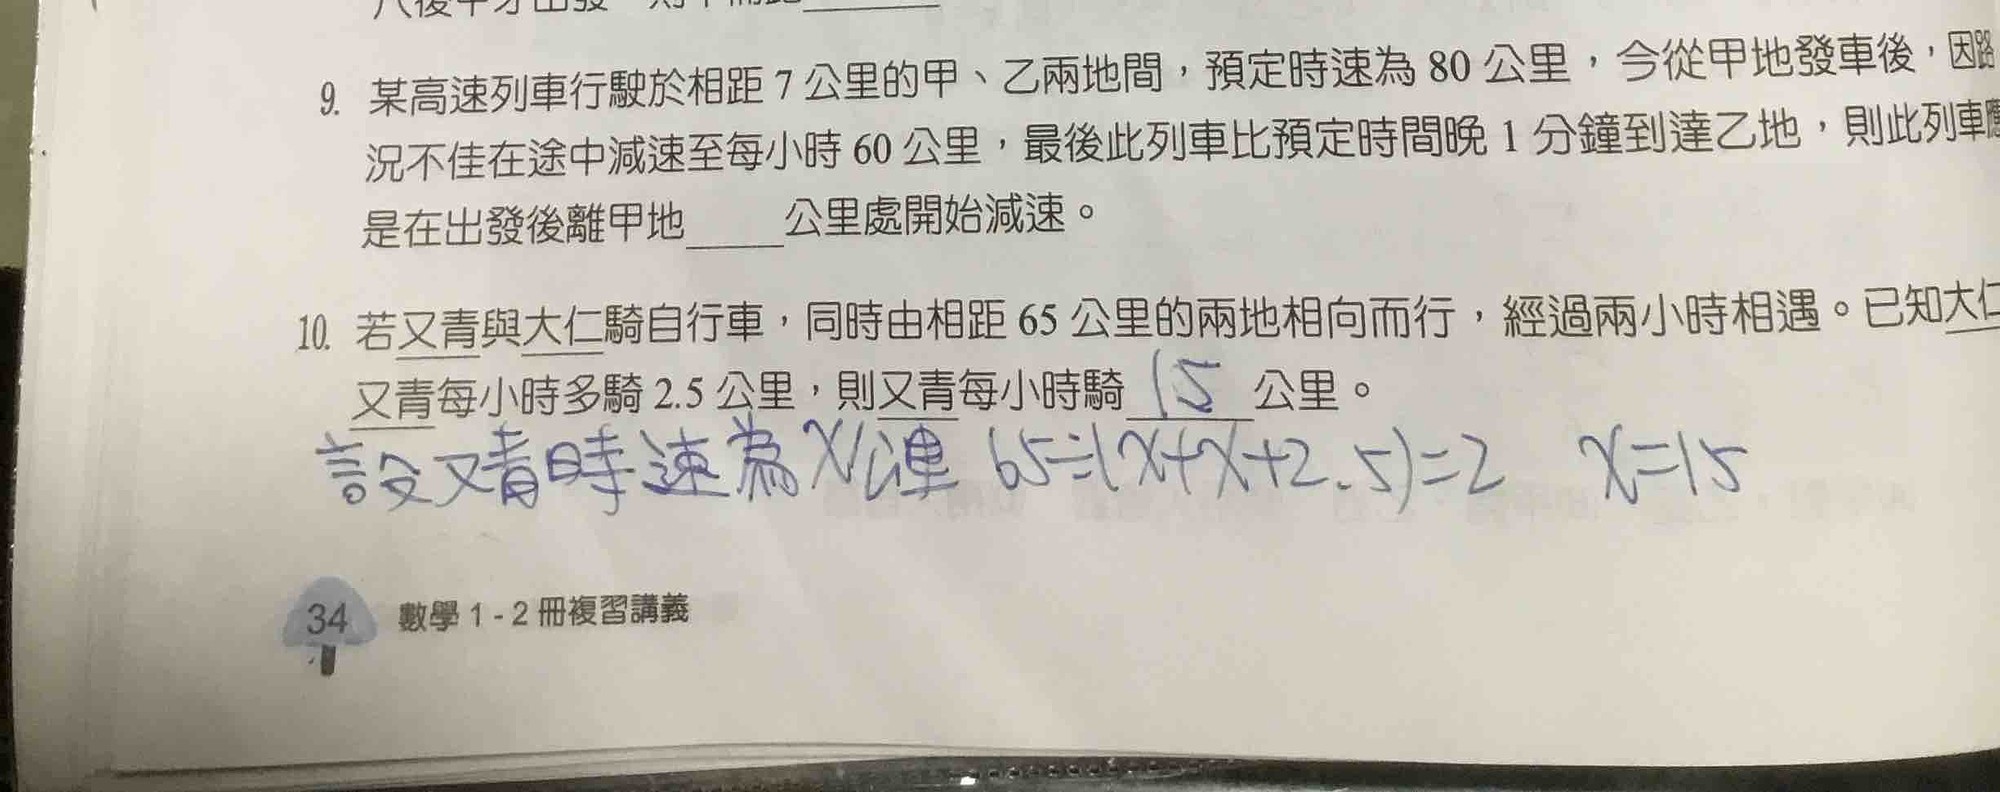 9. 某高速列車行駛於相距 7 公里的甲、乙兩地間，預定時速為 80 公里，今從甲地發車後，因路
況不佳在途中減速至每小時 60 公里，最後此列車比預定時間晚 1 分鐘到達乙地，則此列車應
是在出發後離甲地____公里處開始減速。
10. 若又青與大仁騎自行車，同時由相距 65 公里的兩地相向而行，經過兩小時相遇。已知大仁
又青每小時多騎 2.5 公里，則又青每小時騎 15 公里。
設又青時速為 x 公里 65÷(x+x+2.5)=2 x=15
34 數學 1 - 2 冊複習講義